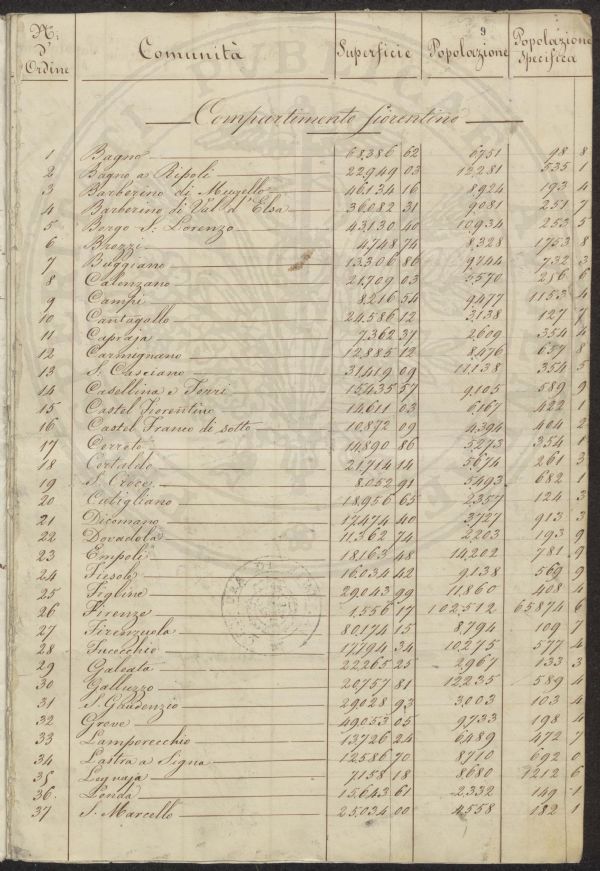 9
N.i d' Ordine Comunità Superficie Popolazione Popolazione Specifica
Compartimento fiorentino
1 Bagno 68386 62 6751 98 8
2 Bagno a Ripoli 22949 03 12,281 535 1
3 Barberino di Mugello 46134 16 8,924 193 4
4 Barberino di Val d'Elsa 36082 31 9,081 251 7
5 Borgo S. Lorenzo 43130 40 10,934 253 5
6 Brozzi 4,748 74 8,328 1753 8
7 Buggiano 13306 86 9,744 732 3
8 Calenzano 21,709 03 5,570 286 6
9 Campi 8216 54 9477 1153 4
10 Cantagallo 24,586 12 3,138 127 7
11 Capraja 7,362 37 2,609 354 4
12 Carmignano 12,885 12 8,476 657 8
13 S. Casciano 31,419 09 11,138 354 5
14 Casellina e Torri 15,435 57 9,105 589 9
15 Castel Fiorentino 14,611 03 6,167 422 1
16 Castel Franco di sotto 10,872 09 4,394 404 2
17 Cerreto 14,890 86 5,273 354 1
18 Certaldo 21,714 14 5,674 261 3
19 S. Croce 8,052 91 5,493 682 1
20 Cutigliano 18,956 65 2,357 124 3
21 Dicomano 17,474 40 3,727 913 3
22 Dovadola 11,362 74 2,203 193 9
23 Empoli 18,163 48 14,202 781 9
24 Fiesole 16,034 42 9,138 569 9
25 Figline 29,043 99 11,860 408 4
26 Firenze 1,556 17 102,512 65874 6
27 Firenzuola 80,174 15 8,794 109 7
28 Fucecchio 17,794 34 10,275 577 4
29 Galeata 22,265 25 2,967 133 3
30 Galluzzo 20,757 81 12,235 589 4
31 S. Gaudenzio 29,028 93 3,003 103 4
32 Greve 49,053 05 9,733 198 4
33 Lamporecchio 13,726 24 6,489 472 7
34 Lastra a Signa 12,586 70 8,710 692 0
35 Legnaja 7,158 18 8,680 1212 6
36 Londa 15,643 61 2,332 149 1
37 S. Marcello 25,034 00 4,558 182 1